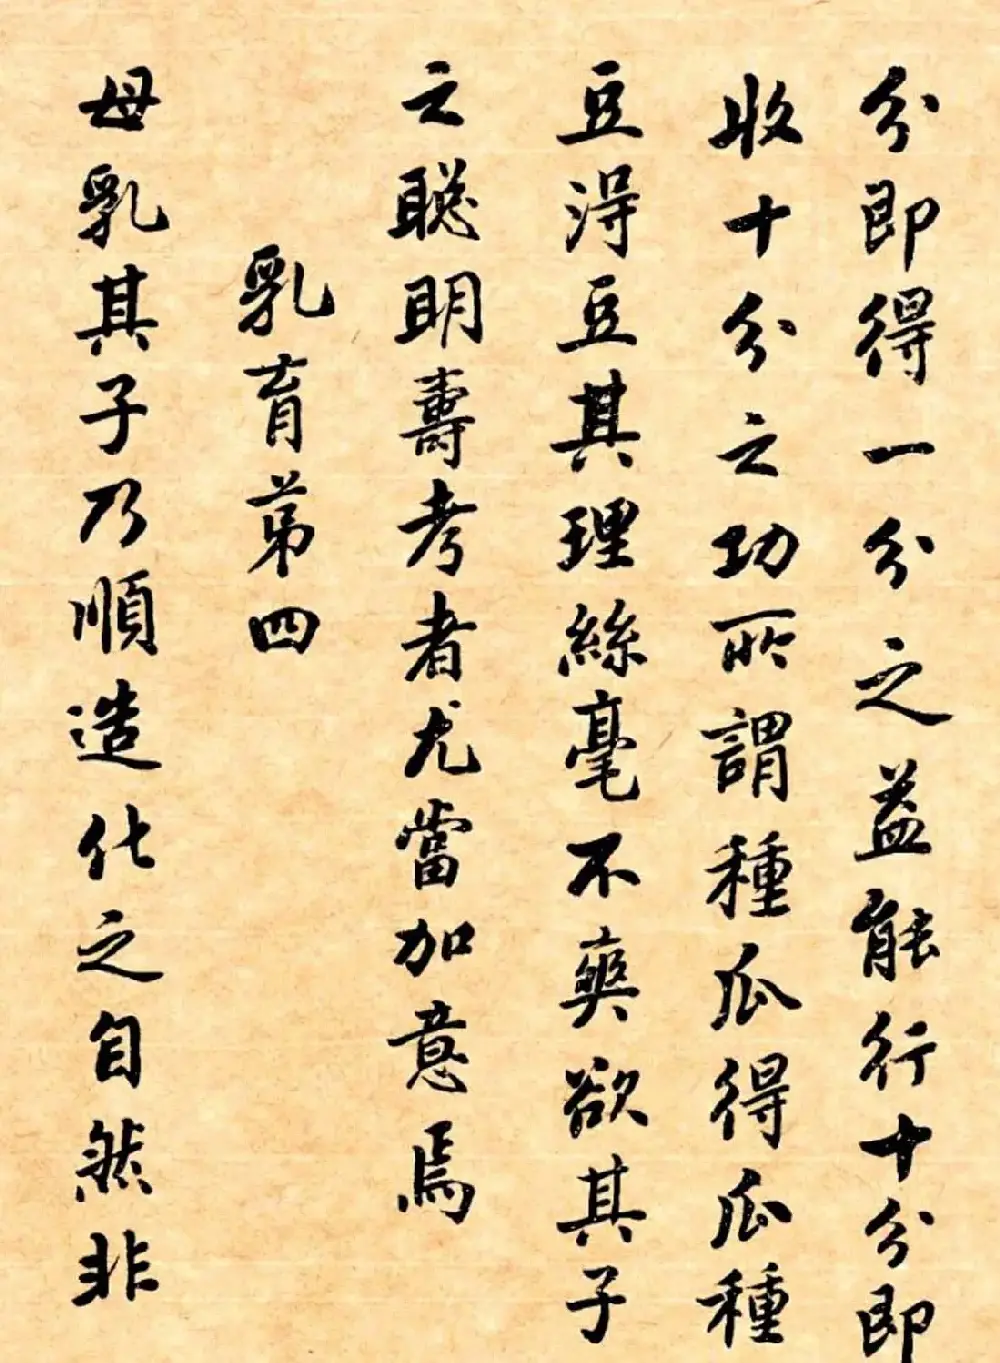 分即得一分之益能行十分即
收十分之功所謂種瓜得瓜種
豆淂豆其理絲毫不爽欲其子
之聡明壽考者尤當加意焉
乳育第四
母乳其子乃順造化之自然非